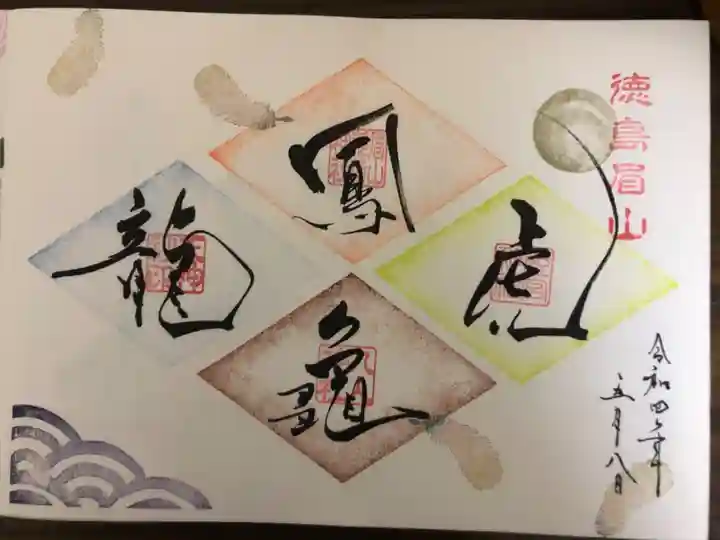 徳島眉山
令和四年
五月八日
鳳
虎
龍
龜